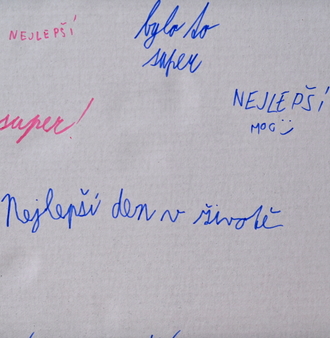 NEJLEPŠÍ
bylo to
super
NEJLEPŠÍ
MOC
super!
Nejlepší den v životě